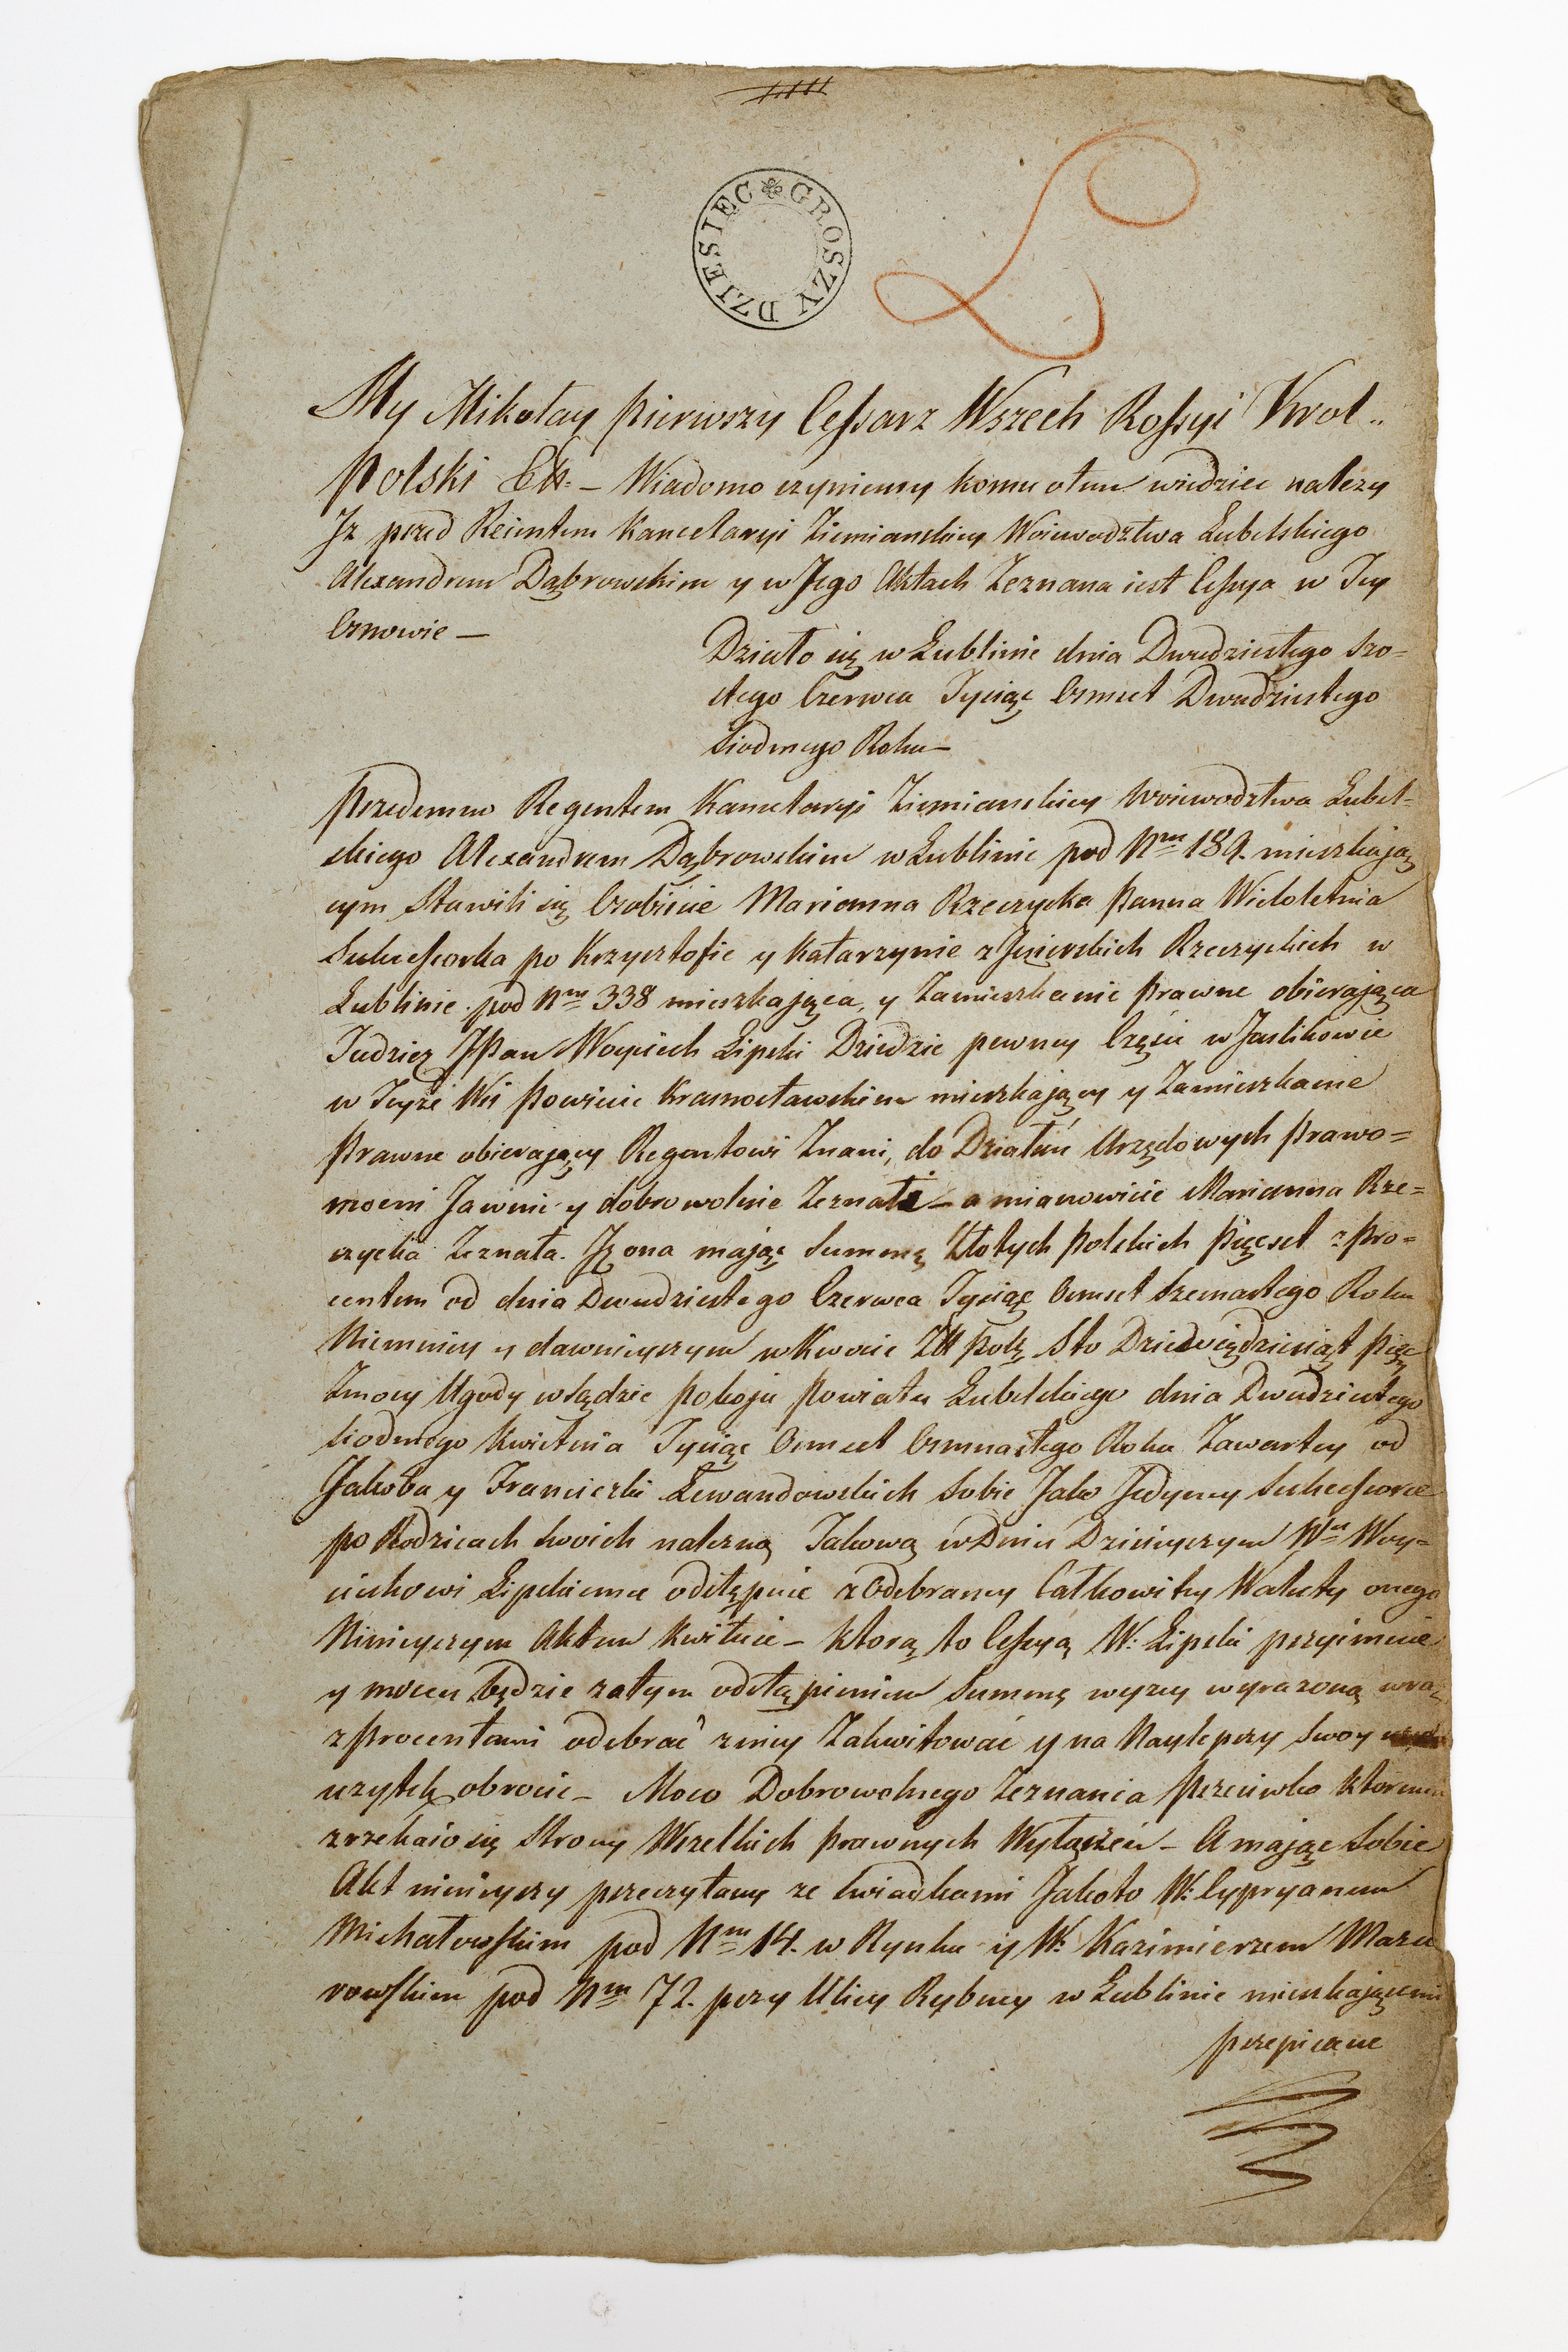 GROSZY DZIESIEC
My Mikołay Pierwszy Cessarz Wszech Rossyi Krol
Polski Etc. – Wiadomo czyniemy komu otem wiedziec nalezy
Jz przed Reientem Kancelaryi Ziemianskiey Woiewodztwa Lubelskiego
Alexandrem Dąbrowskim y w Jego Aktach Zeznana iest Cessya w Tey
Osnowie –
Działo się w Lublinie dnia Dwudziestego Szo=
stego Czerwca Tysiąc Osmset Dwudziestego
Siodmego Roku –
Przedemno Regentem Kancelaryi Ziemianskiey Woiewodztwa Lubel=
skiego Alexandrem Dąbrowskim w Lublinie pod Nrm 189. mieszkają
cym Stawili się Osobiscie Marianna Rzeczycka Panna Wieloletnia
Sukcessorka po Krzysztofie y Katarzynie z Rzeczyckich w
Lublinie pod Nrm 338 mieszkaiąca, y Zamieszkanie Prawne obierająca
Tudziez JPan Woyciech Lipski Dziedzic pewney Częsci w Jaslikowie
w Teyże Wsi Powiecie Krasnostawskim mieszkający y Zamieszkanie
Prawne obierający Regentowi Znani, do Działań Urzędowych Prawo=
mocni Jawnie y dobrowolnie Zeznali – a mianowicie Marianna Rze=
czycka Zeznała. Jz ona mając Summę Złotych Polskich Pięcset z Pro=
centem od dnia Dwudziestego Czerwca Tysiąc Osmset Roku
Niemniey y dawnieyszym w Kwocie Zł Pols Sto Dziewięcdziesiąt Pięc
Zmocy Ugody w Sądzie Pokoju Powiatu Lubelskiego dnia Dwudziestego
Siodmego Kwietnia Tysiąc Osmset Osmnastego Roku Zawartey od
Jakoba y Franciszki Lewandowskich Sobie Jako Jedyney Sukcessorce
po Rodzicach Swoich nalezną Takową w Dniu Dzisieyszym Wu Woy=
ciechowi Lipskiemu odstępuie z Odebraney Całkowitey Waluty onego
Ninieyszym Aktem Kwituie – Ktorą to Cessyą W: Lipski przyimuie
y mocen będzie zatym odstąpieniem Summę wyzey wyrazoną wraz
z Procentami odebrać zniey Zakwitować y na Naylepszy Swoy
uzytek obrocic – Moco Dobrowolnego Zeznania Przeciwko Ktoremu
zrzekaio się Strony Wszelkich Prawnych Wyłączeń – A mając Sobie
Akt ninieyszy przeczytany ze Swiadkami Jakoto W: Cypryanem
Michałowskim pod Nrm 14. w Rynku y W: Kazimierzem Mazu
rowskim pod Nrm 72. przy Ulicy Rybney w Lublinie mieszkającemi
przepisane